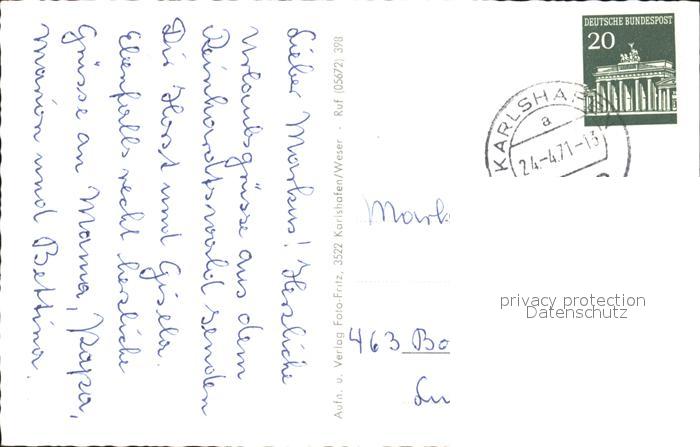 Lieber Markus! Herzliche
Urlaubsgrüsse aus dem
Reinhardtswald senden
Dir Horst und Gisela.
Ebenfalls recht herzliche
Grüsse an Mama, Papa,
Marion und Bettina.
Aufn. u. Verlag Foto-Fritz, 3522 Karlshafen/Weser · Ruf (05672) 398
DEUTSCHE BUNDESPOST
20
KARLSHAF
a
24.-4.71-13
Mark
463 Bo
privacy protection
Datenschutz